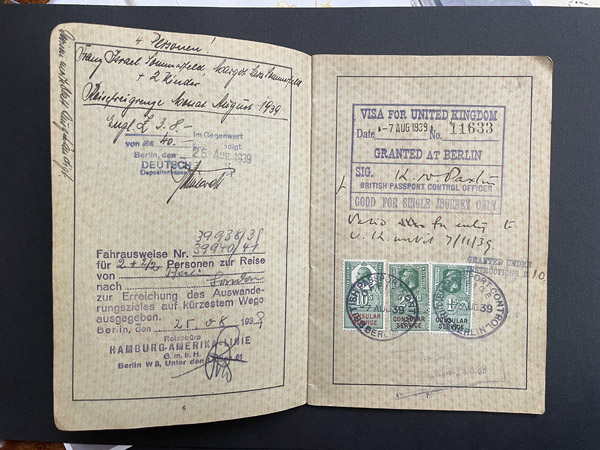 4 Personen!
Franz Israel Sommerfeld, Margot Sara Sommerfeld
+ 2 Kinder
Reisefreigrenze Monat August 1939
Engl. £ 3.8.-
im Gegenwert
von RM 40.-
Berlin, den 25 AUG. 1939
DEUTSCH
Depositenkasse
39938/39
Fahrausweise Nr. 39940/41
für 2 + 2/2 Personen zur Reise
von Berlin
nach London
zur Erreichung des Auswande-
rungszieles auf kürzestem Wege
ausgegeben.
Berlin, den 25. 08 1939
Reisebüro
HAMBURG-AMERIKA-LINIE
G.m.b.H.
Berlin W8, Unter den
6
VISA FOR UNITED KINGDOM
Date -7 AUG 1939 No. 11633
GRANTED AT BERLIN
SIG.
BRITISH PASSPORT CONTROL OFFICER
GOOD FOR SINGLE JOURNEY ONLY
Valid for entry to
U.K. until 7/11/39.
GRANTED UNDER
INSTRUCTIONS
BRITISH PASSPORT CONTROL
-7 AUG 39
BERLIN
CONSULAR SERVICE
CONSULAR SERVICE
CONSULAR SERVICE
PASSPORT CONTROL
39
BERLIN
7